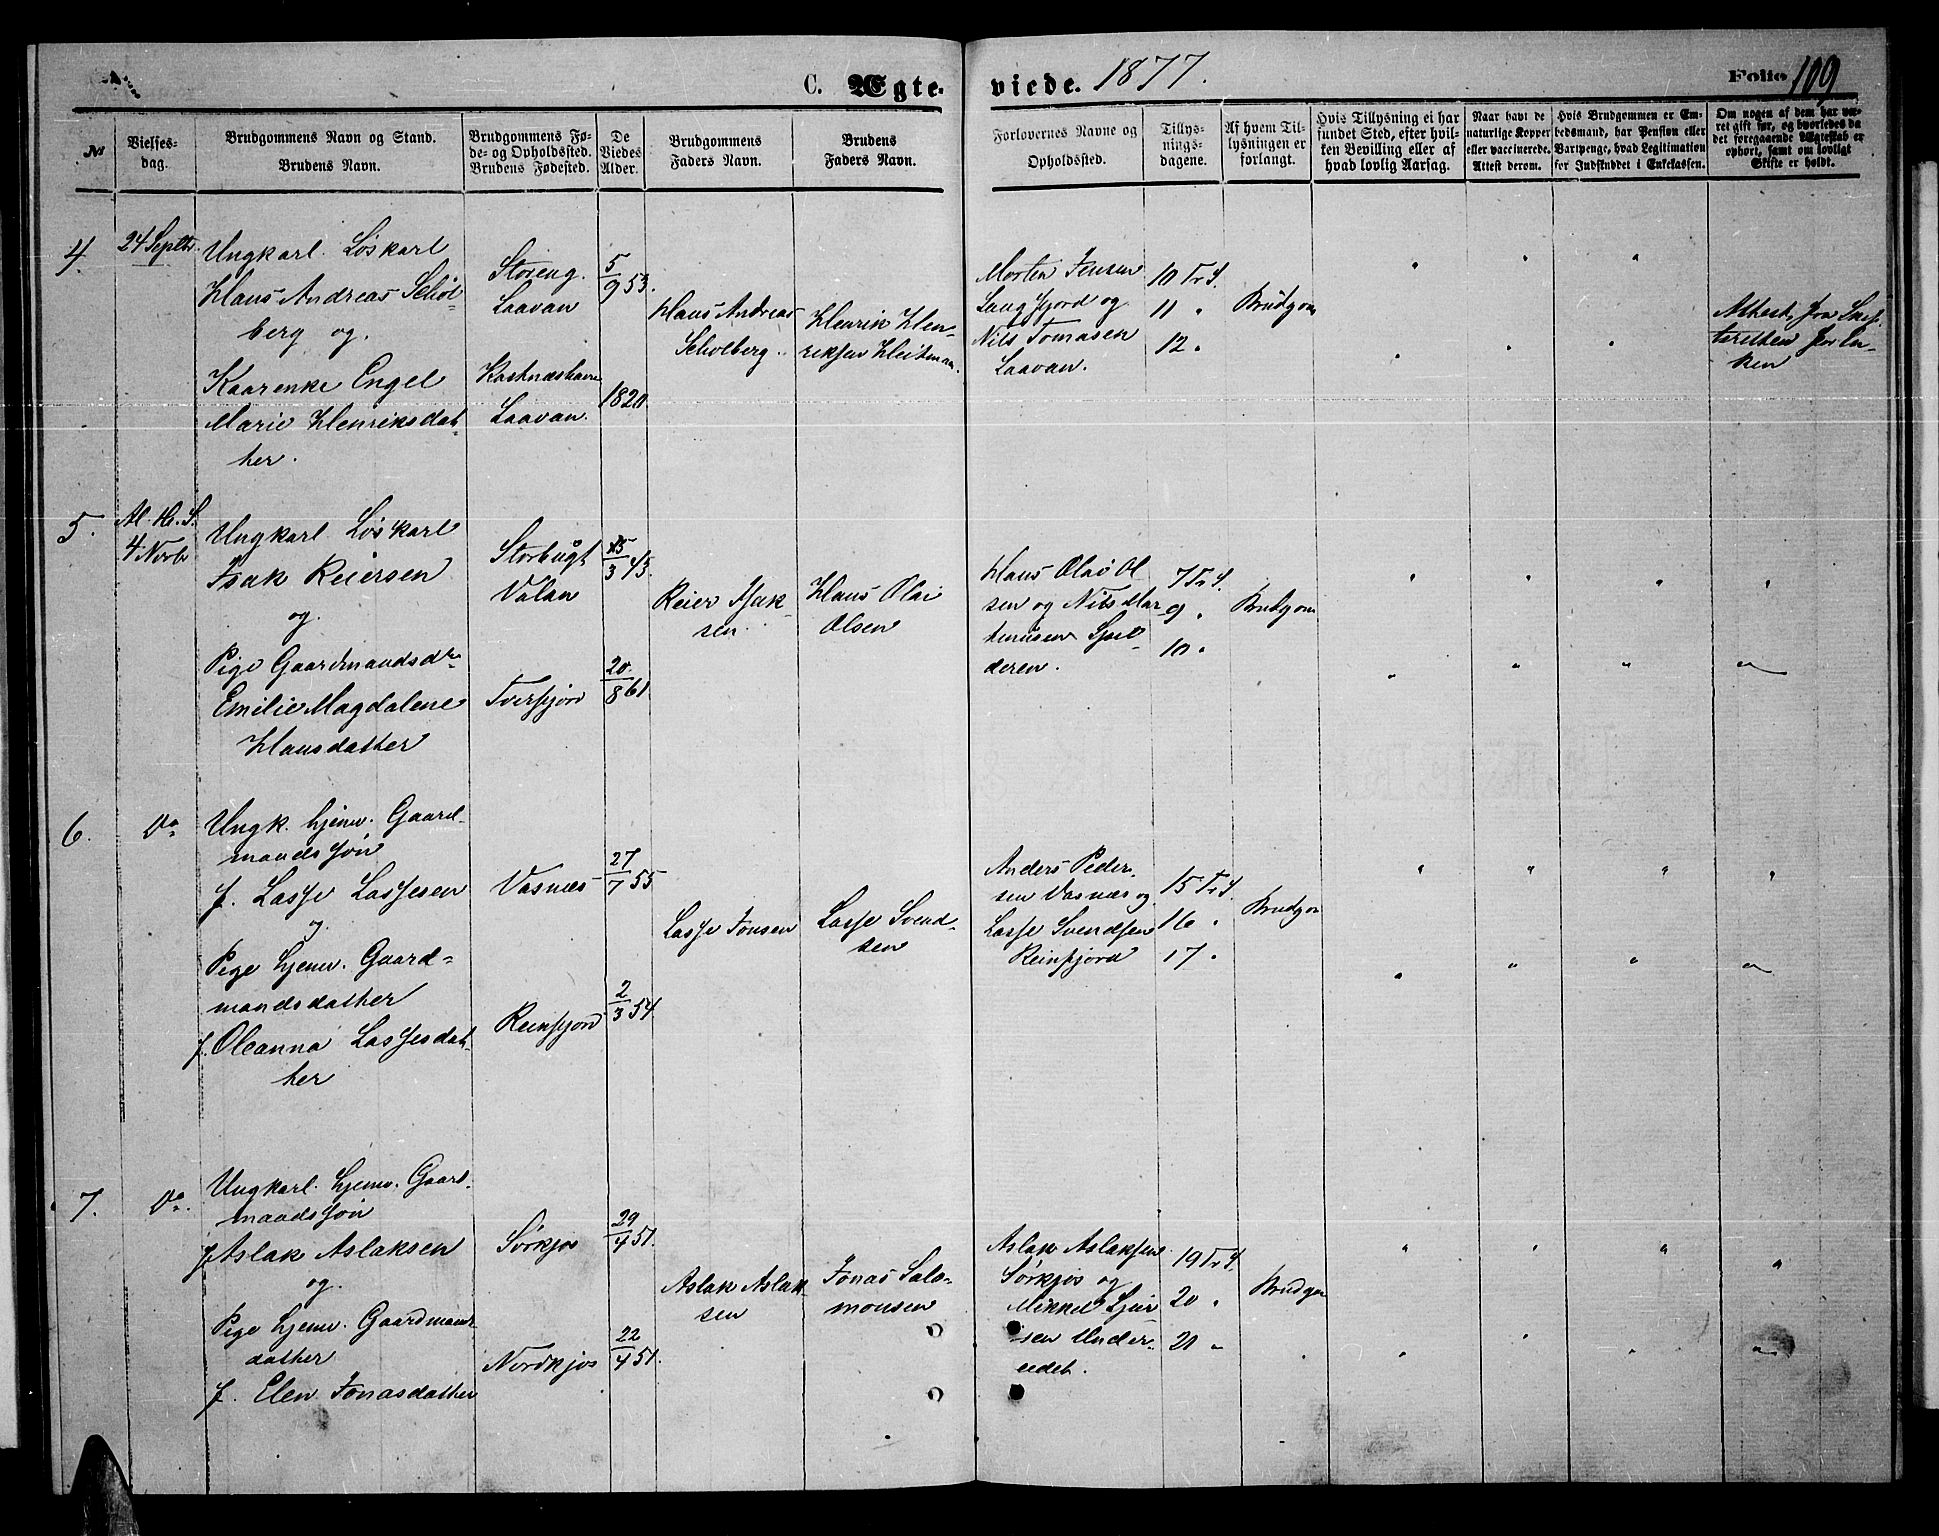 C. Ægteviede. 1877.
Folio 109
№
Vielsesdag.
Brudgommens Navn og Stand.
Brudens Navn.
Brudgommens Føde- og Opholdssted.
Brudens Fødested.
De Viedes Alder.
Brudgommens Faders Navn.
Brudens Faders Navn.
Forlovernes Navne og Opholdssted.
Tillysningsdagene.
Af hvem Tillysningen er forlangt.
Hvis Tillysning ei har fundet Sted, efter hvilken Bevilling eller af hvad lovlig Aarsag.
Naar havt de naturlige Kopper eller vaccinerede. Attest derom.
Hvis Brudgommen er Embedsmand, har Pension eller Vartpenge, hvad Legitimation for Indskudet i Enkekassen.
Om nogen af dem har været gift før, og hvorledes da det foregaaende Ægteskab er ophørt, samt om lovligt Skifte er holdt.
4.
24 Septbr.
Ungkarl. Løskarl
Hans Andreas Schol-
berg og.
Kaarenke Engel
Marie Henriksdat-
ter.
Storeng.
Laavan
Laavan.
5/9 53.
1820
Hans Andreas
Scholberg.
Henrik Hen-
riksen Heitman.
Morten Jensen
Langfjord og
Nils Tomasen
Laavan.
10 Tr. S.
11 "
12 "
Brudgom
5.
4 Novbr
Ungkarl Løskarl
Isak Reiersen
og.
Pige Gaardmandsdr.
Emilie Magdalene
Hansdatter
Storbugt
Valan
Tverfjord
15/3 43.
20/8 61.
Reier Isak-
sen.
Hans Olai
Olsen
Hans Olai Ol
sen og Nils Mar-
tinusen
deren.
7 Tr. S.
9 "
10 "
Brudgom
6.
Do
Ungk. hjemv. Gaard-
mandssøn
f. Lasse Lassesen
og
Pige hjemv. Gaard-
mandsdatter
f. Oleanna Lassesdat-
ter
Vasnæs
Reinfjord
27/7 55
2/3 54
Lasse Jonsen
Lasse Svend-
sen
Anders Peder-
sen Vasnæs og
Lasse Svendsen
Reinfjord
15 Tr. S.
16 "
17 "
Brudgom
7.
Do.
Ungkarl. hjemv. Gaard-
mandssøn
f. Aslak Aslaksen
og.
Pige hjemv. Gaardmands-
datter
f. Elen Jonasdatter
Sørkjos
Nordkjos
29/4 51.
22/4 51.
Aslak Aslak
sen
Jonas Salo-
monsen
Aslak Aslaksen
Sørkjos og
Mikkel
sen Under-
eidet.
19 Tr. S.
20 "
21 "
Brudgom